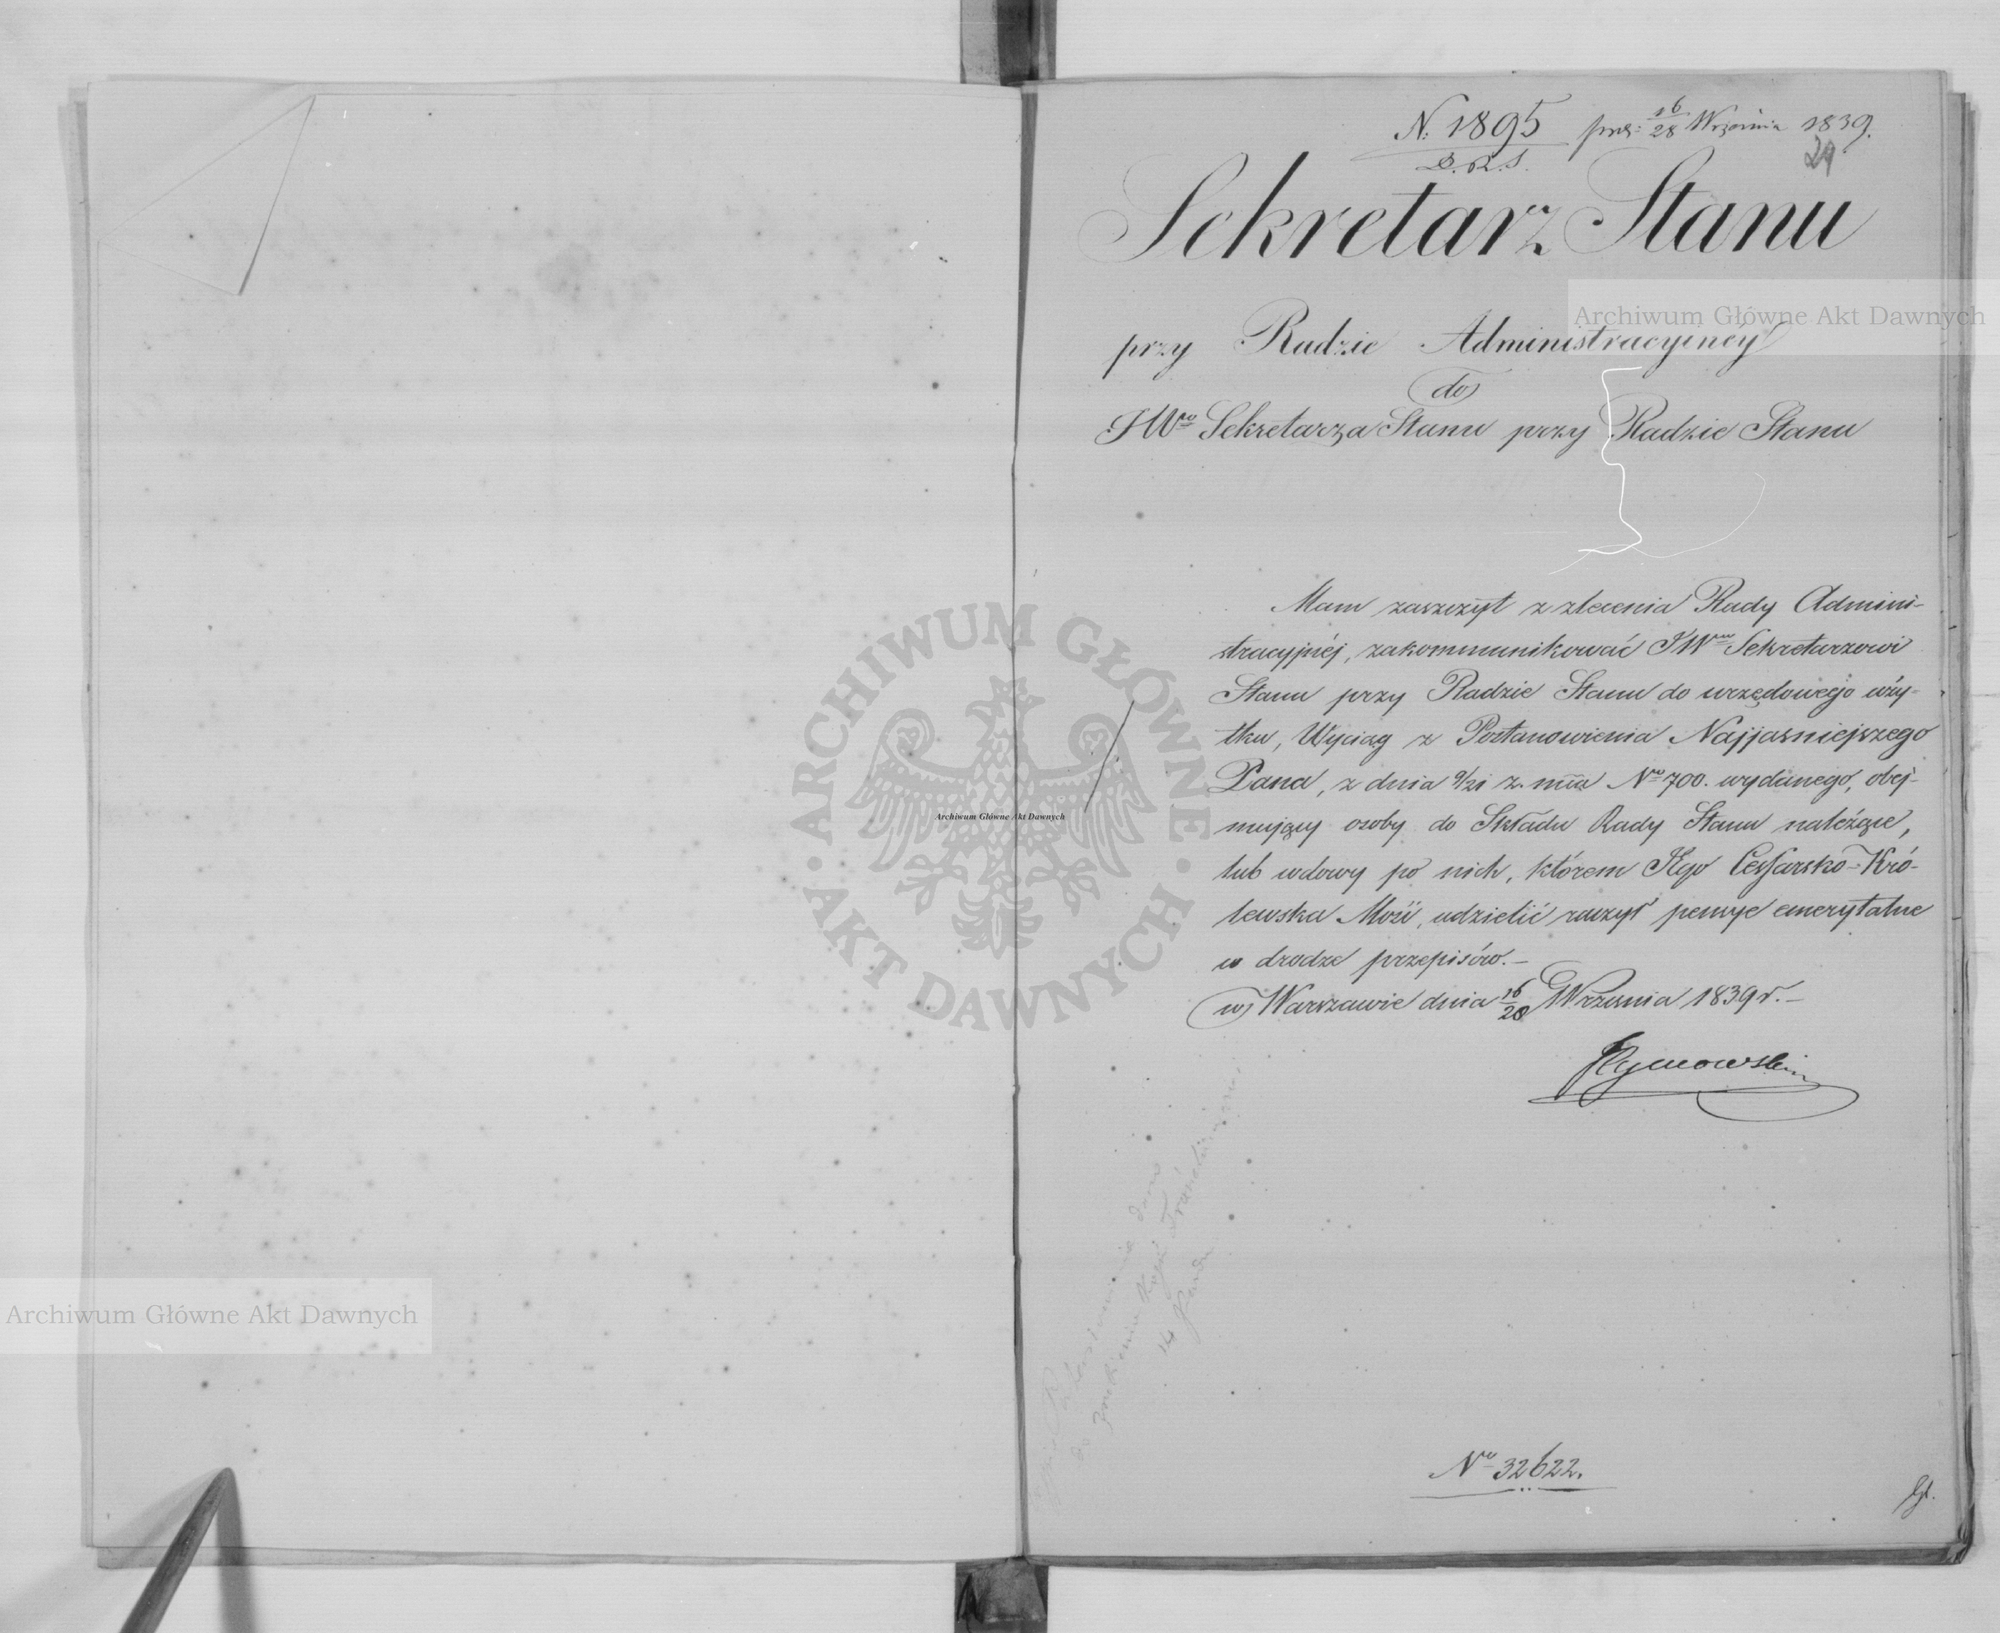 N. 1895 prez: 16/28 Września 1839.
D.R.S.
29
Sekretarz Stanu
przy Radzie Administracyiney
do
JWgo Sekretarza Stanu przy Radzie Stanu
Mam zaszczyt z zlecenia Rady Admini-
stracyjnéj, zakommunikować JWmu Sekretarzowi
Stanu przy Radzie Stanu do urzędowego uży-
tku, Wyciąg z Postanowienia Najjasniejszego
Pana, z dnia 9/21 z. m̄ca No 700. wydanego, obej-
mujący osoby do Składu Rady Stanu należące,
lub wdowy po nich, którem Jego Cesarsko-Kró-
lewska Mość, udzielić raczył pensye emerytalne
w drodze przepisów.-
w Warszawie dnia 16/28 Września 1839 r.-
Tymowski
do
14
No 32622.
Archiwum Główne Akt Dawnych
Archiwum Główne Akt Dawnych
Archiwum Główne Akt Dawnych
· ARCHIWUM GŁÓWNE · AKT DAWNYCH